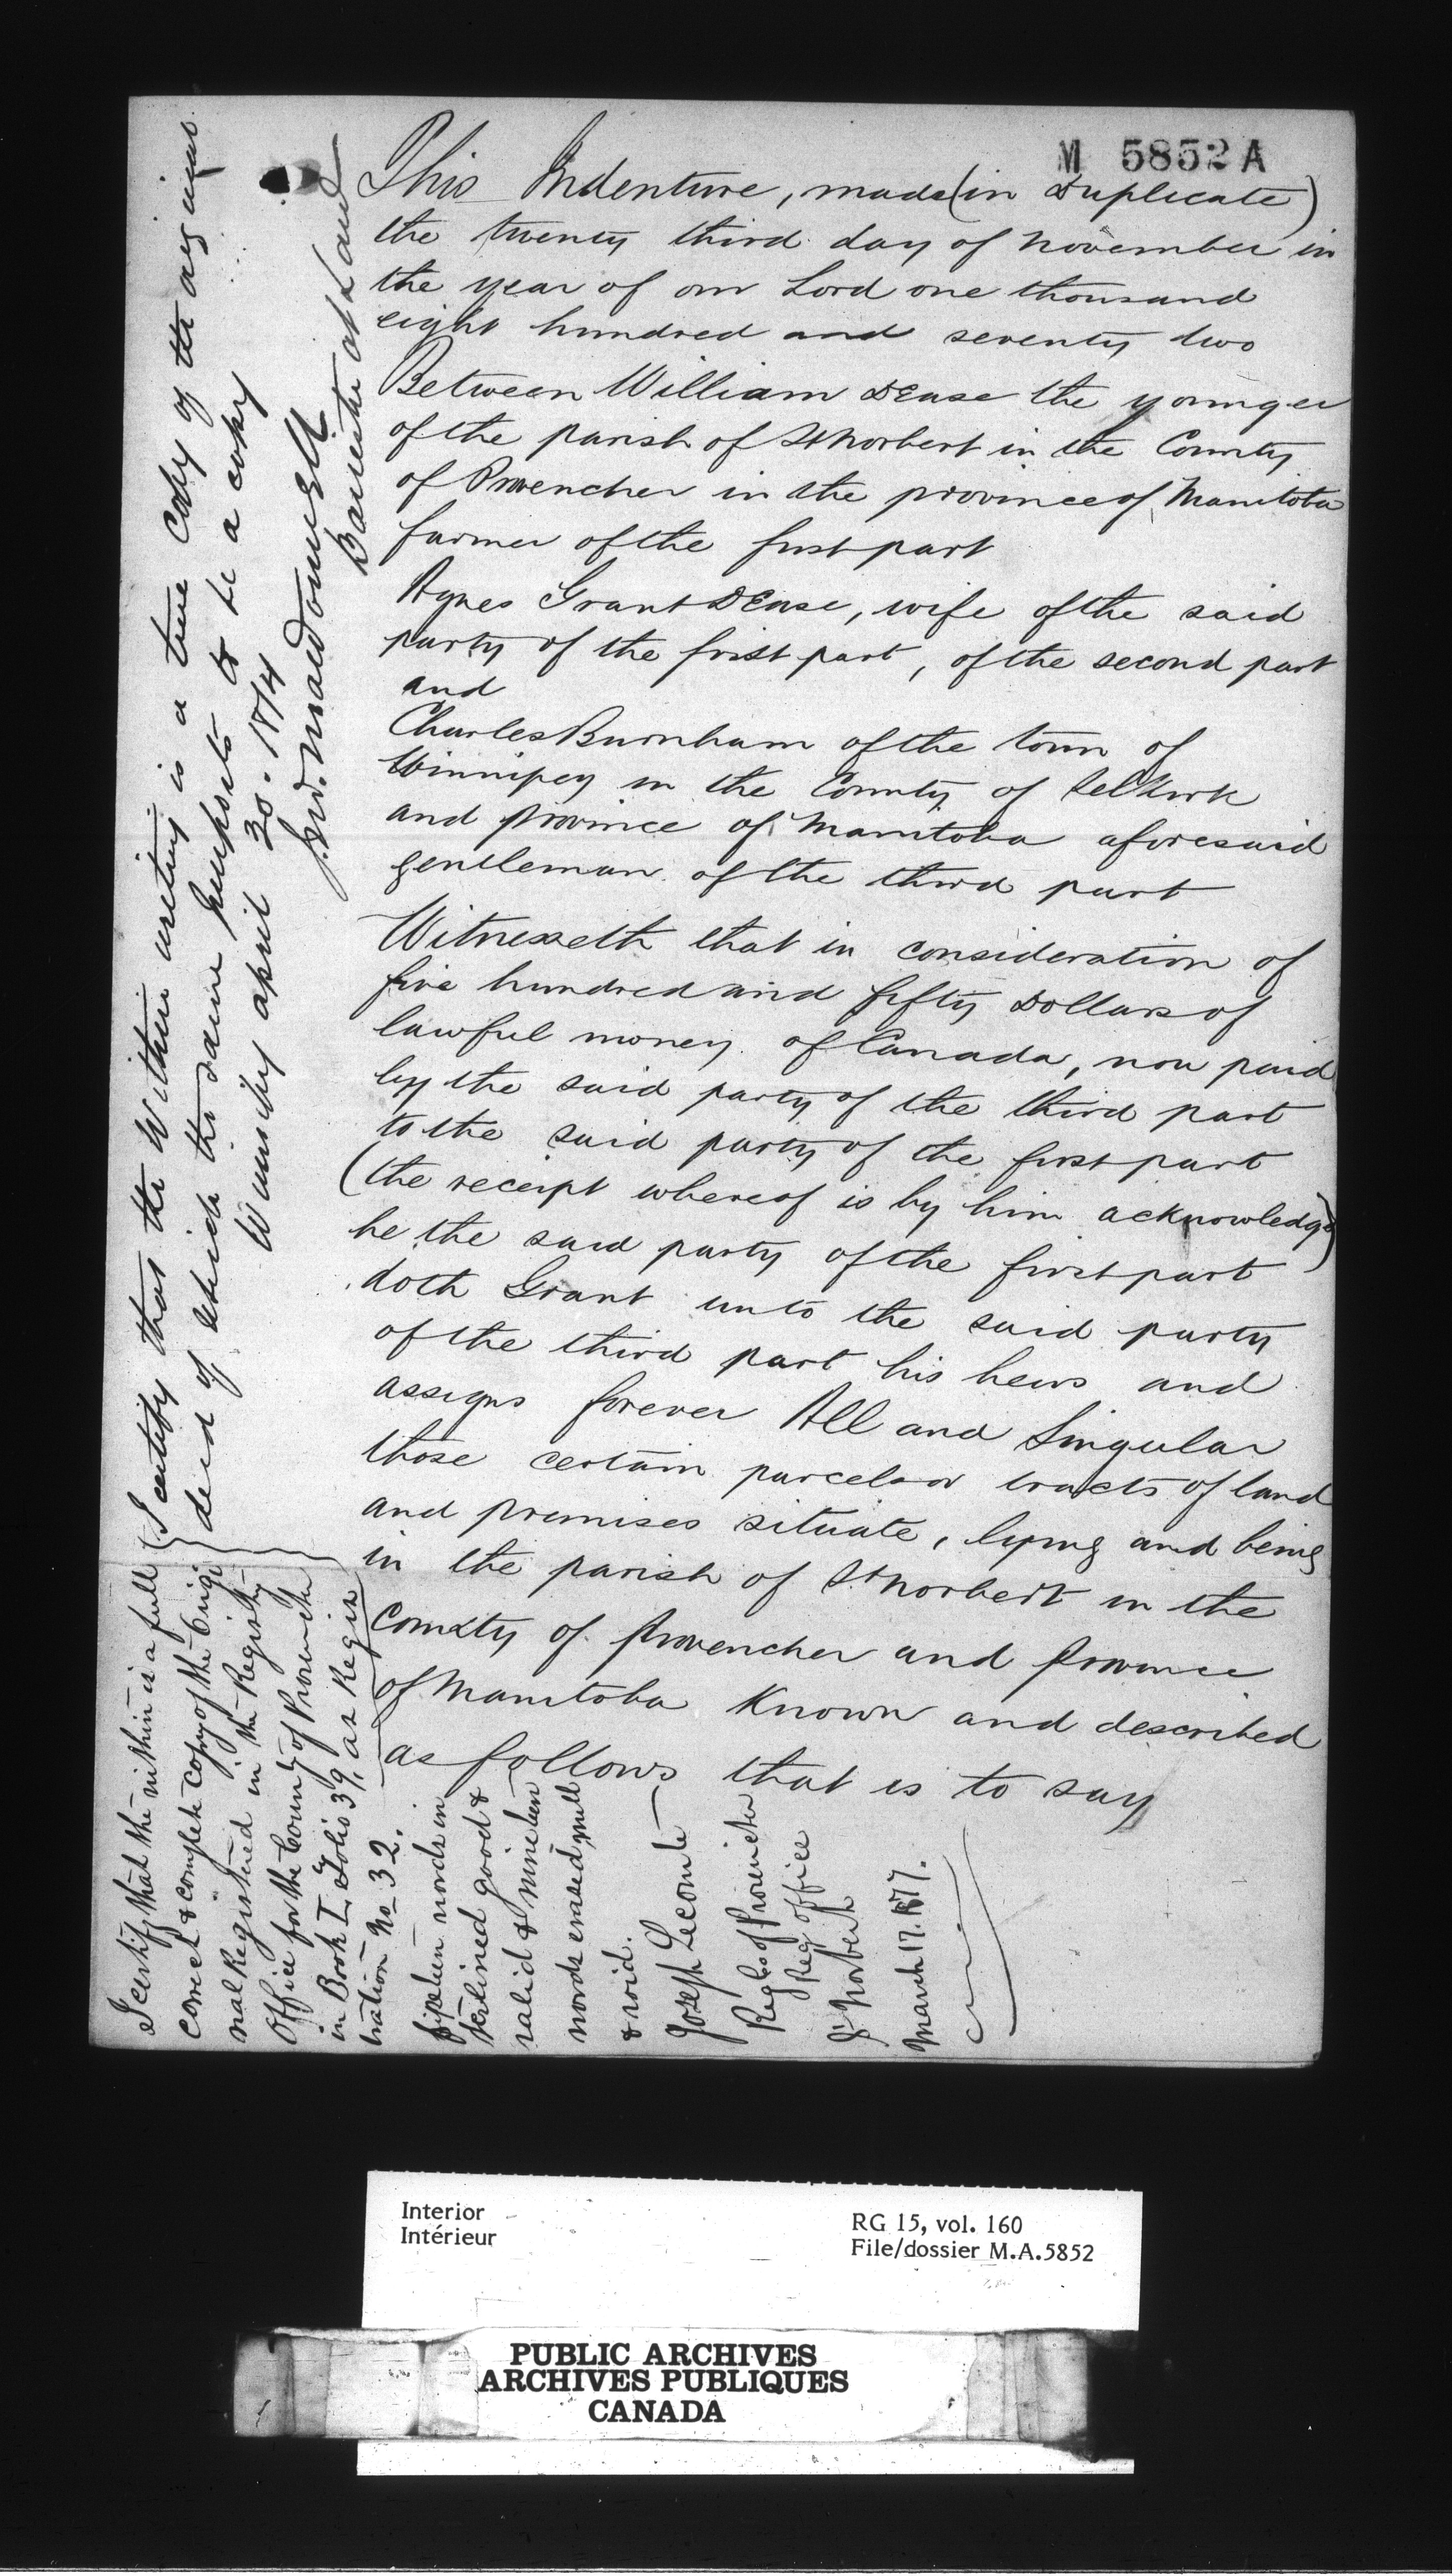 M 5852 A
This Indenture, made (in Duplicate)
the twenty third day of November in
the year of our Lord one thousand
eight hundred and seventy two
Between William DEase the younger
of the parish of St Norbert in the County
of Provencher in the province of Manitoba
farmer of the first part
Agnes Grant DEase, wife of the said
party of the first part, of the second part
and
Charles Burnham of the town of
Winnipeg in the County of Selkirk
and province of Manitoba aforesaid
gentleman of the third part
Witnesseth that in consideration of
five hundred and fifty Dollars of
lawful money of Canada, now paid
by the said party of the third part
to the said party of the first part
(the receipt whereof is by him acknowledged)
he the said party of the first part
doth Grant unto the said party
of the third part his heirs and
assigns forever All and Singular
those certain parcels or tracts of land
and premises situate, lying and being
in the parish of St Norbert in the
County of Provencher and province
of Manitoba Known and described
as follows that is to say
I certify that the within writing is a true copy of the original
deed of which the same purports to be a copy
Winnipeg april 30. 1874
Barrister at Law
I certify that the within is a full
correct & complete copy of the Origi
nal Registered in the Registry
Office for the County of Provencher
in Book I Folio 39, as Regis
tration No 32.
fifteen words in
terlined good &
valid & nineteen
words erased null
& void.
Joseph Lecomte
Reg Co of Provencher
Reg office
St Norbert
March 17. 1877.
Interior
Intérieur
RG 15, vol. 160
File/dossier M.A.5852
PUBLIC ARCHIVES
ARCHIVES PUBLIQUES
CANADA